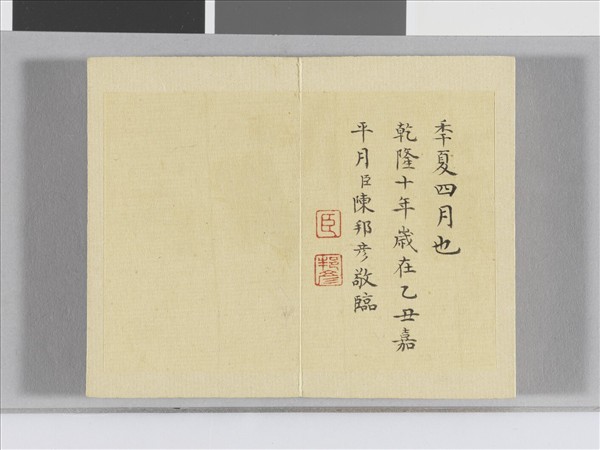 季夏四月也
乾隆十年歲在乙丑嘉
平月臣陳邦彦敬臨
臣
邦彦